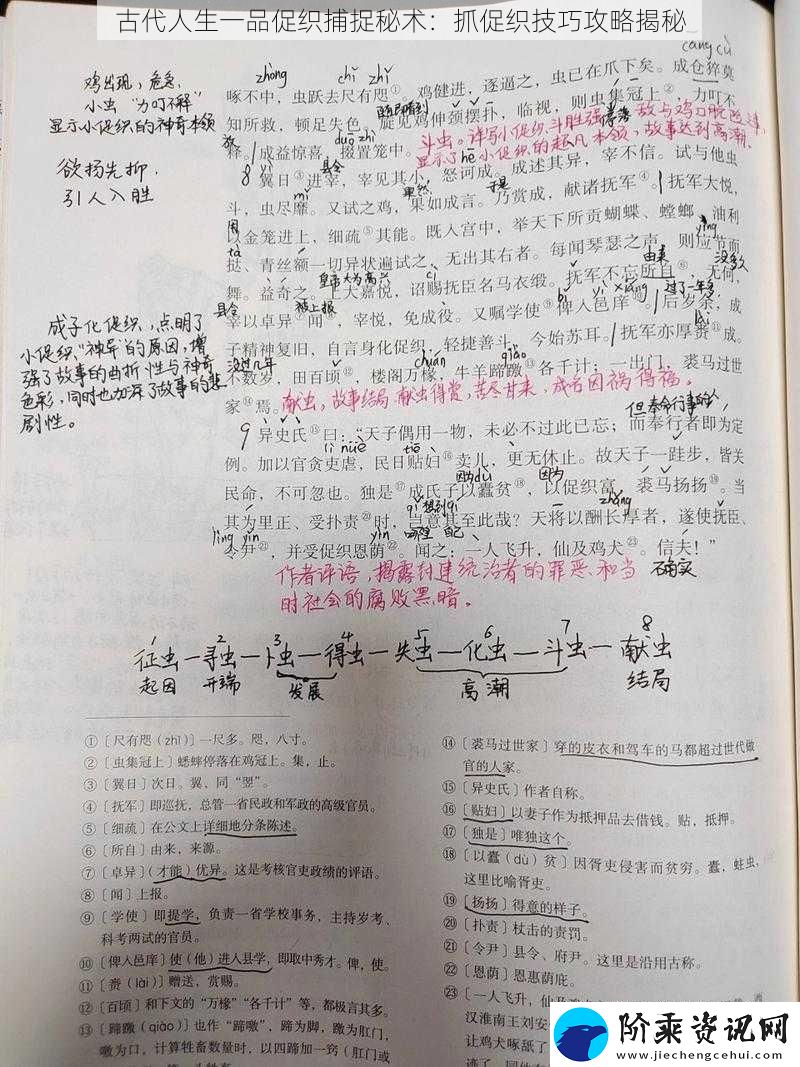 古代人生一品促织捕捉秘术：抓促织技巧攻略揭秘
cāng cù
zhòng chǐ zhǐ
啄不中，虫跃去尺有咫①。鸡健进，逐逼之，虫已在爪下矣。成仓猝莫
随即看到
知所救，顿足失色。旋见鸡伸颈摆扑，临视，则虫集冠上②，力叮不
放 duō zhì
释。成益惊喜，掇置笼中。
斗虫。详写小促织斗胜强
敌与鸡口脱险过
显示了小促织的超凡本领，故事达到高潮。
县令 hē
8 翼日③进宰，宰见其小，怒诃成。成述其异，宰不信。试与他虫
mǐ 果然 于是
斗，虫尽靡。又试之鸡，果如成言。乃赏成，献诸抚军④。抚军大悦，
用
以金笼进上，细疏⑤其能。既入宫中，举天下所贡蝴蝶、螳螂、油利
tà yìng
挞、青丝额一切异状遍试之，无出其右者。每闻琴瑟之声，则应节而
皇帝大为高兴 cì 由来 没多久
舞。益奇之。上大嘉悦，诏赐抚臣名马衣缎。抚军不忘所自⑥，无何，
县令 被上报 bǐ yì xiáng 过了一年多
宰以卓异⑦闻⑧，宰悦，免成役。又嘱学使⑨俾人邑庠⑩。后岁余，成
lài
子精神复旧，自言身化促织，轻捷善斗，今始苏耳。抚军亦厚赉⑪成。
没过几年 chuán qiào
不数岁，田百顷⑫，楼阁万椽，牛羊蹄躈⑬各千计；一出门，裘马过世
家⑭焉。
献虫，故事结局，献虫得赏，苦尽甘来，成名因祸得福。
但奉命行事的人
9 异史氏⑮曰：“天子偶用一物，未必不过此已忘；而奉行者即为定
lì nüè tiē
例。加以官贪吏虐，民日贴妇⑯卖儿，更无休止。故天子一跬步，皆关
因为 dù 因为
民命，不可忽也。独是⑰成氏子以蠹贫⑱，以促织富，裘马扬扬⑲。当
qǐ 想到 qí zhǎng
其为里正、受扑责⑳时，岂意其至此哉？天将以酬长厚者，遂使抚臣、
lìng yǐn yìn 哪里 自己
令尹㉑，并受促织恩荫㉒。闻之：一人飞升，仙及鸡犬㉓。信夫！”
确实
作者评语，揭露封建统治者的罪恶和当
时社会的腐败黑暗。
鸡出现，危急，
小虫“力叮不解”
显示小促织的神奇本领
欲扬先抑，
引人入胜
成子化促织，点明了
小促织“神异”的原因，增
强了故事的曲折性与神奇
色彩，同时也加深了故事的悲
剧性。
1 2 3 4 5 6 7 8
征虫—寻虫—卜虫—得虫—失虫—化虫—斗虫—献虫
起因 开端 发展 高潮 结局
①［尺有咫（zhǐ）］一尺多。咫，八寸。
②［虫集冠上］蟋蟀停落在鸡冠上。集，止。
③［翼日］次日。翼，同“翌”。
④［抚军］即巡抚，总管一省民政和军政的高级官员。
⑤［细疏］在公文上详细地分条陈述。
⑥［所自］由来，来源。
⑦［卓异］（才能）优异。这是考核官吏政绩的评语。
⑧［闻］上报。
⑨［学使］即提学，负责一省学校事务，主持岁考、
科考两试的官员。
⑩［俾人邑庠］使（他）进入县学，即取中秀才。俾，使。
⑪［赉（lài）］赠送，赏赐。
⑫［百顷］和下文的“万椽”“各千计”等，都极言其多。
⑬［蹄躈（qiào）］也作“蹄噭”，蹄为脚，噭为肛门，
噭为口，计算牲畜数量时，以四蹄加一窍（肛门或
⑭［裘马过世家］穿的皮衣和驾车的马都超过世代做
官的人家。
⑮［异史氏］作者自称。
⑯［贴妇］以妻子作为抵押品去借钱。贴，抵押。
⑰［独是］唯独这个。
⑱［以蠹（dù）贫］因胥吏侵害而贫穷。蠹，蛀虫，
这里比喻胥吏。
⑲［扬扬］得意的样子。
⑳［扑责］杖击的责罚。
㉑［令尹］县令、府尹。这里是沿用古称。
㉒［恩荫］恩惠荫庇。
㉓［一人飞升，仙及鸡犬］
汉淮南王刘安
让鸡犬啄舐了
阶乘资讯网
www.jiechengcehui.com